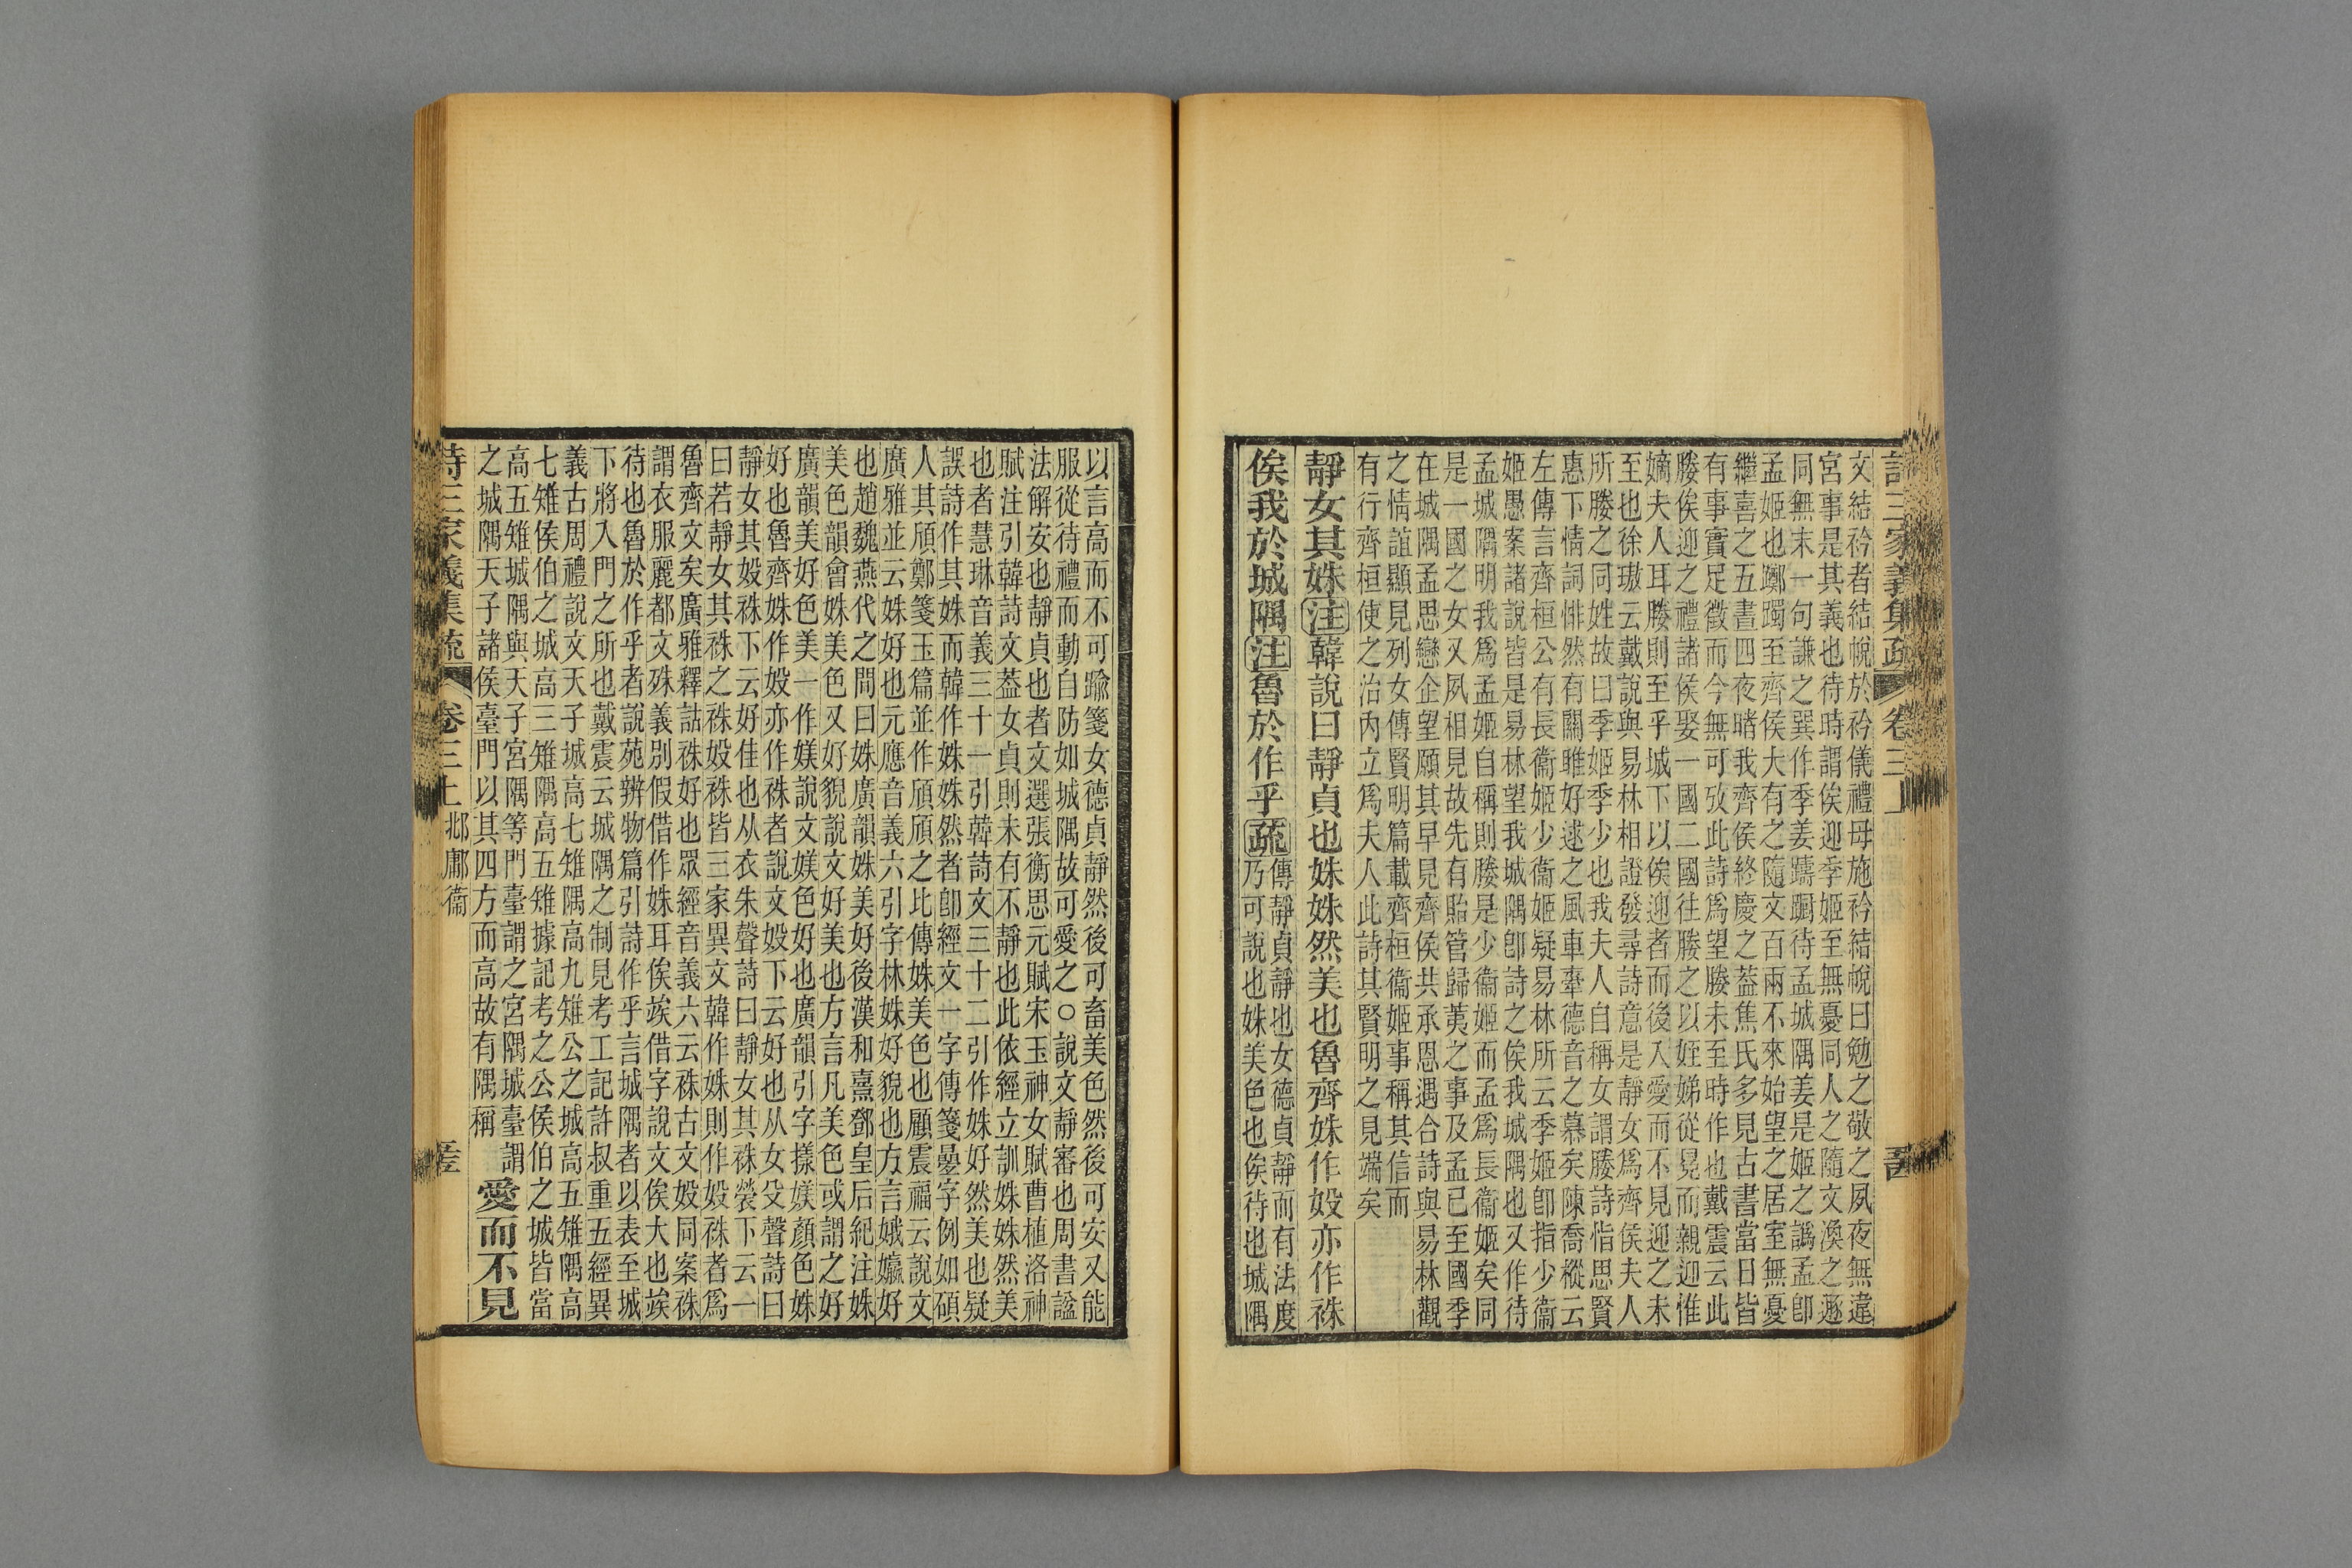 詩三家義集疏 卷三上
文結衿者結帨於衿儀禮母施衿結帨曰勉之敬之夙夜無違
宮事是其義也待時謂俟迎季姬至無憂同人之隨文渙之遯
同無末一句謙之巽作季姜躊躕待孟城隅姜是姬之譌孟卽
孟姬也躑躅至齊侯大有之隨文百兩不來始望之居室無憂
繼喜之五書四夜睹我齊侯終慶之葢焦氏多見古書當日皆
有事實足徵而今無可攷此詩爲望媵未至時作也戴震云此
媵俟迎之禮諸侯娶一國二國往媵之以姪娣從冕而親迎惟
嫡夫人耳媵則至乎城下以俟迎者而後入愛而不見迎之未
至也徐璈云戴說與易林相證發尋詩意是靜女爲齊侯夫人
所媵之同姓故曰季姬季少也我夫人自稱女謂媵詩恉思賢
惠下情詞悱然有關雎好逑之風車舝德音之慕矣陳喬樅云
左傳言齊桓公有長衞姬少衞姬疑易林所云季姬卽指少衞
姬愚案諸說皆是易林望我城隅卽詩之俟我城隅也又作待
孟城隅明我爲孟姬自稱則媵是少衞姬而孟爲長衞姬矣同
是一國之女又夙相見故先有貽管歸荑之事及孟已至國季
在城隅孟思戀企望願其早見齊侯共承恩遇合詩與易林觀
之情誼顯見列女傳賢明篇載齊桓衞姬事稱其信而
有行齊桓使之治內立爲夫人此詩其賢明之見端矣
靜女其姝注韓說曰靜貞也姝姝然美也魯齊姝作㛠亦作袾
俟我於城隅注魯於作乎疏
傳靜貞靜也女德貞靜而有法度
乃可說也姝美色也俟待也城隅
以言高而不可踰箋女德貞靜然後可畜美色然後可安又能
服從待禮而動自防如城隅故可愛之○說文靜審也周書諡
法解安也靜貞也者文選張衡思元賦宋玉神女賦曹植洛神
賦注引韓詩文葢女貞則未有不靜也此依經立訓姝姝然美
也者慧琳音義三十一引韓詩文三十二引作姝好然美也疑
誤詩作其姝而韓作姝姝然者卽經文一字傳箋曡字例如碩
人其頎鄭箋玉篇並作頎頎之比傳姝美色也顧震福云說文
廣雅並云姝好也元應音義六引字林姝好貌也方言娥㜲好
也趙魏燕代之間曰姝廣韻姝美好後漢和熹鄧皇后紀注姝
美色韻會姝美色又好貌說文好美也方言凡美色或謂之好
廣韻美好色美一作媄說文媄色好也廣韻引字樣媄顏色姝
好也魯齊姝作㛠亦作袾者說文㛠下云好也从女殳聲詩曰
靜女其㛠袾下云好佳也从衣朱聲詩曰靜女其袾褮下云一
曰若靜女其袾之袾㛠袾皆三家異文韓作姝則作㛠袾者爲
魯齊文矣廣雅釋詁袾好也眾經音義六云袾古文㛠同案袾
謂衣服麗都文殊義別假借作姝耳俟竢借字說文俟大也竢
待也魯於作乎者說苑辨物篇引詩作乎言城隅者以表至城
下將入門之所也戴震云城隅之制見考工記許叔重五經異
義古周禮說文天子城高七雉隅高九雉公之城高五雉隅高
七雉侯伯之城高三雉隅高五雉據記考之公侯伯之城皆當
高五雉城隅與天子宮隅等門臺謂之宮隅城臺謂
之城隅天子諸侯臺門以其四方而高故有隅稱
愛而不見
詩三家義集疏 卷三上 邶鄘衞